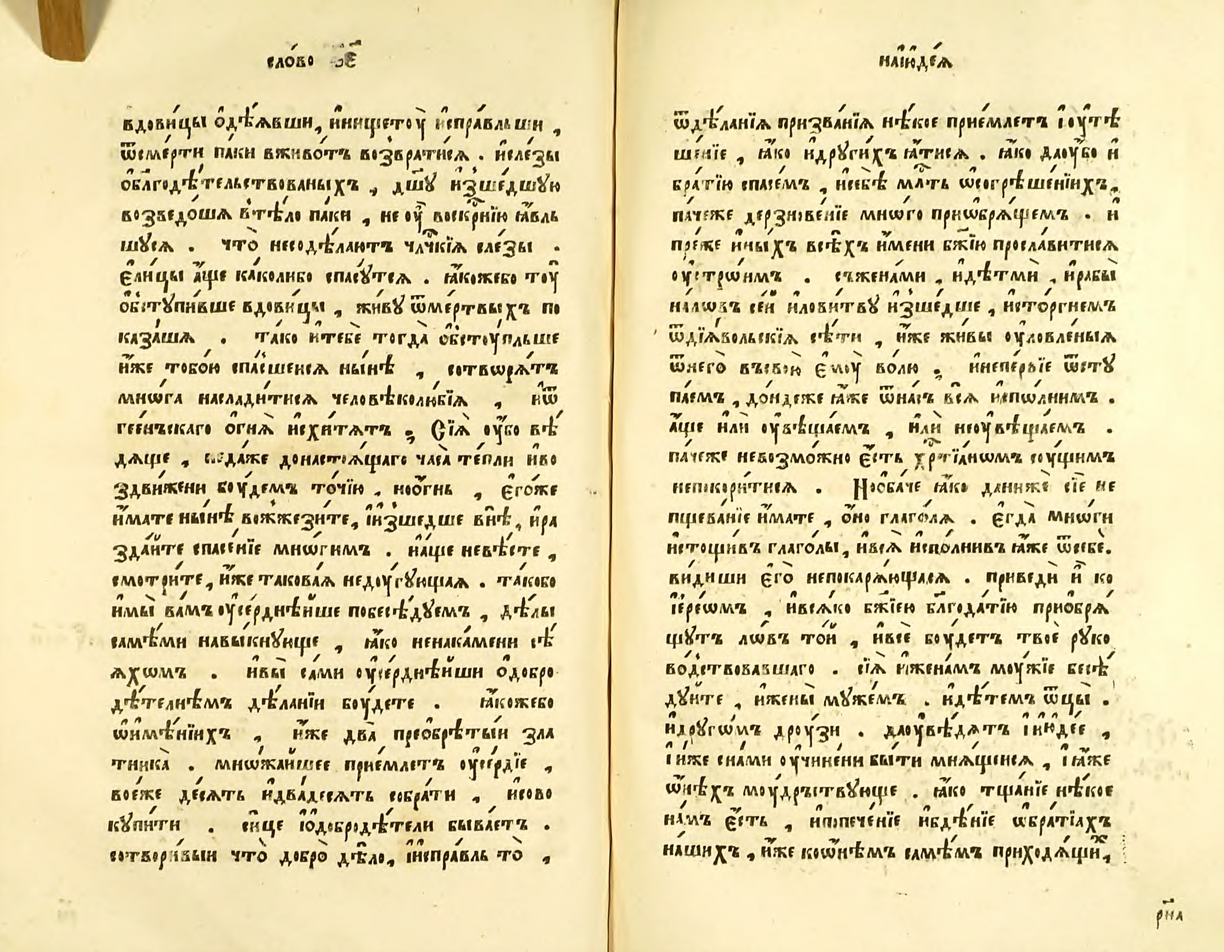 сло́во
вдови́цы ѻ҆дѣ́ѧвши, и҆нищетоу̀ и҆спра́вльши,
ѿсме́рти паки вживо́тъ возврати́сѧ. и҆сле́зы
ѻ҆благодѣ́тельствованыхъ, дш҃ꙋ и҆зше́дшꙋю
возведо́шѧ втѣ́ло па́ки, не оу҆ воскр҇нїю ꙗ҆вль
шꙋсѧ. что̀ несодѣ́лаютъ чл҃чкїѧ сле́зы.
є҆ли́цы а҆́ще ка́колибо спасꙋ́тсѧ. ꙗ҆́коже́бо тоу̀
ѻ҆бстꙋпи́вше вдови́цы, жи́вꙋ ѿме́ртвыхъ по
каза́шѧ. та́ко и҆тебѐ тогда̀ ѻ҆бстоу́пльше
и҆́же тобо́ю спа́сшеисѧ нн҃ѣ, сотворѧ́тъ
мнѡ́га наслади́тисѧ человѣколю́бїѧ, и҆ѿ
гее́ньскаго ѻ҆гнѧ̀ и҆схи́тѧтъ. Сїѧ̀ оу҆́бо вѣ́
дѧще, недаже донастоѧ́щаго часа̀ те́пли и҆во
здви́жени боу́демъ то́чїю. ноѻ҆́гнь, є҆го́же
и҆́мате ны́нѣ возжези́те, и҆и҆зше́дше внѣ̀, и҆ра
зда́йте спасе́нїе мнѡ́гимъ. и҆а҆́ще невѣ́сте,
смотри́те, и҆́же такова́ѧ недоу́гꙋющаѧ. та́кобо
и҆мы̀ ва́мъ оу҆се́рднѣйше побесѣ́дꙋемъ, дѣ́лы
самѣ́ми навы́кнꙋвше, ꙗ҆́ко ненака́мени сѣ́
ѧхѡмъ. и҆вы̀ са́ми оу҆се́рднѣйши ѻ҆добро
дѣ́телнѣмъ дѣ́ланїи боу́дете. ꙗ҆́коже́бо
ѡ҆и҆мѣ́нїихъ, и҆́же два̀ преѻбрѣ́тыи зла
тника̀. мнѡжа́йшее прїе́млетъ оу҆се́рдїе,
во є҆́же де́сѧть и҆два́десѧть собра́ти, и҆сово
кꙋпи́ти. си́це і҆ѻ҆добродѣ́тели быва́етъ.
сотвори́выи что̀ добро̀ дѣ́ло, и҆и҆спра́вль то̀,
наі҆ю҆де́ѧ
ѿдѣ́ланїѧ призва́нїѧ нѣ́кое прїе́млетъ і҆оу҆тѣ
ше́нїе, ꙗ҆́ко и҆дрꙋги́хъ ꙗ҆́тисѧ. ꙗ҆́ко даоу҆́бо и҆
бра́тїю спасе́мъ, и҆себѣ̀ мл҇ть ѡ҆согрѣше́нїихъ,
па́чеже дерзнове́нїе мно́го приѡбрѧ́щемъ. и҆
пре́же и҆ны́хъ всѣ́хъ и҆́мени бж҃їю просла́витисѧ
оу҆стро́имъ. съжена́ми, и҆дѣтмѝ, и҆рабы̀
нало́въ се́й и҆лови́твꙋ и҆зше́дше, и҆сто́ргнемъ
ѿдїѧ́вольскїѧ сѣ́ти, и҆́же жи́вы оу҆ловле́ныѧ
ѿнего̀ въсвою̀ є҆мꙋ̀ во́лю. и҆непе́рвїе ѿстꙋ
па́емъ, до́ндеже ꙗ҆́же ѿна́съ всѧ̀ и҆спо́лнимъ.
а҆́ще и҆лѝ оу҆вѣща́емъ, и҆лѝ неоу҆вѣща́емъ.
па́чеже невозмо́жно є҆́сть хр҇тїа́нѡмъ соу́щимъ
непокори́тисѧ. Но ѻ҆ба́че ꙗ҆́ко даниже сїѐ не
пщева́нїе и҆́мате, ѻ҆но̀ глаго́лѧ. є҆гда̀ мно́ги
и҆стощи́въ глаго́лы, и҆всѧ̀ и҆спо́лнивъ ꙗ҆́же ѿсебѐ.
ви́диши є҆го̀ непокарѧ́ющасѧ. приведѝ и҆̀ ко
і҆ере́ѡмъ, и҆всѧ́ко бж҃їею блг҃ода́тїю приѡбрѧ́
щꙋтъ ло́въ то́й, и҆всѐ боу́детъ твоѐ рꙋко
во́дствовавшаго. сїѧ̀ и҆жена́мъ моу́жїе бесѣ́
дꙋйте, и҆жены̀ мꙋже́мъ. и҆дѣ́темъ ѻ҆тцы̀.
и҆дрꙋгѡ́мъ дрꙋ́зи. даоу҆вѣ́дѧтъ і҆и҆ю҆де́е,
і҆и҆́же сна́ми оу҆чине́ни бы́ти мнѧ́щеисѧ, і҆ꙗ҆́же
ѻ҆нѣ́хъ моу́дрьствꙋюще. ꙗ҆́ко тща́нїе нѣ́кое
на́мъ є҆́сть, и҆попече́нїе и҆бдѣ́нїе ѡ҆бра́тїахъ
на́шихъ, и҆́же кони́мъ самѣ́мъ приходѧ́щих,
рн҃а